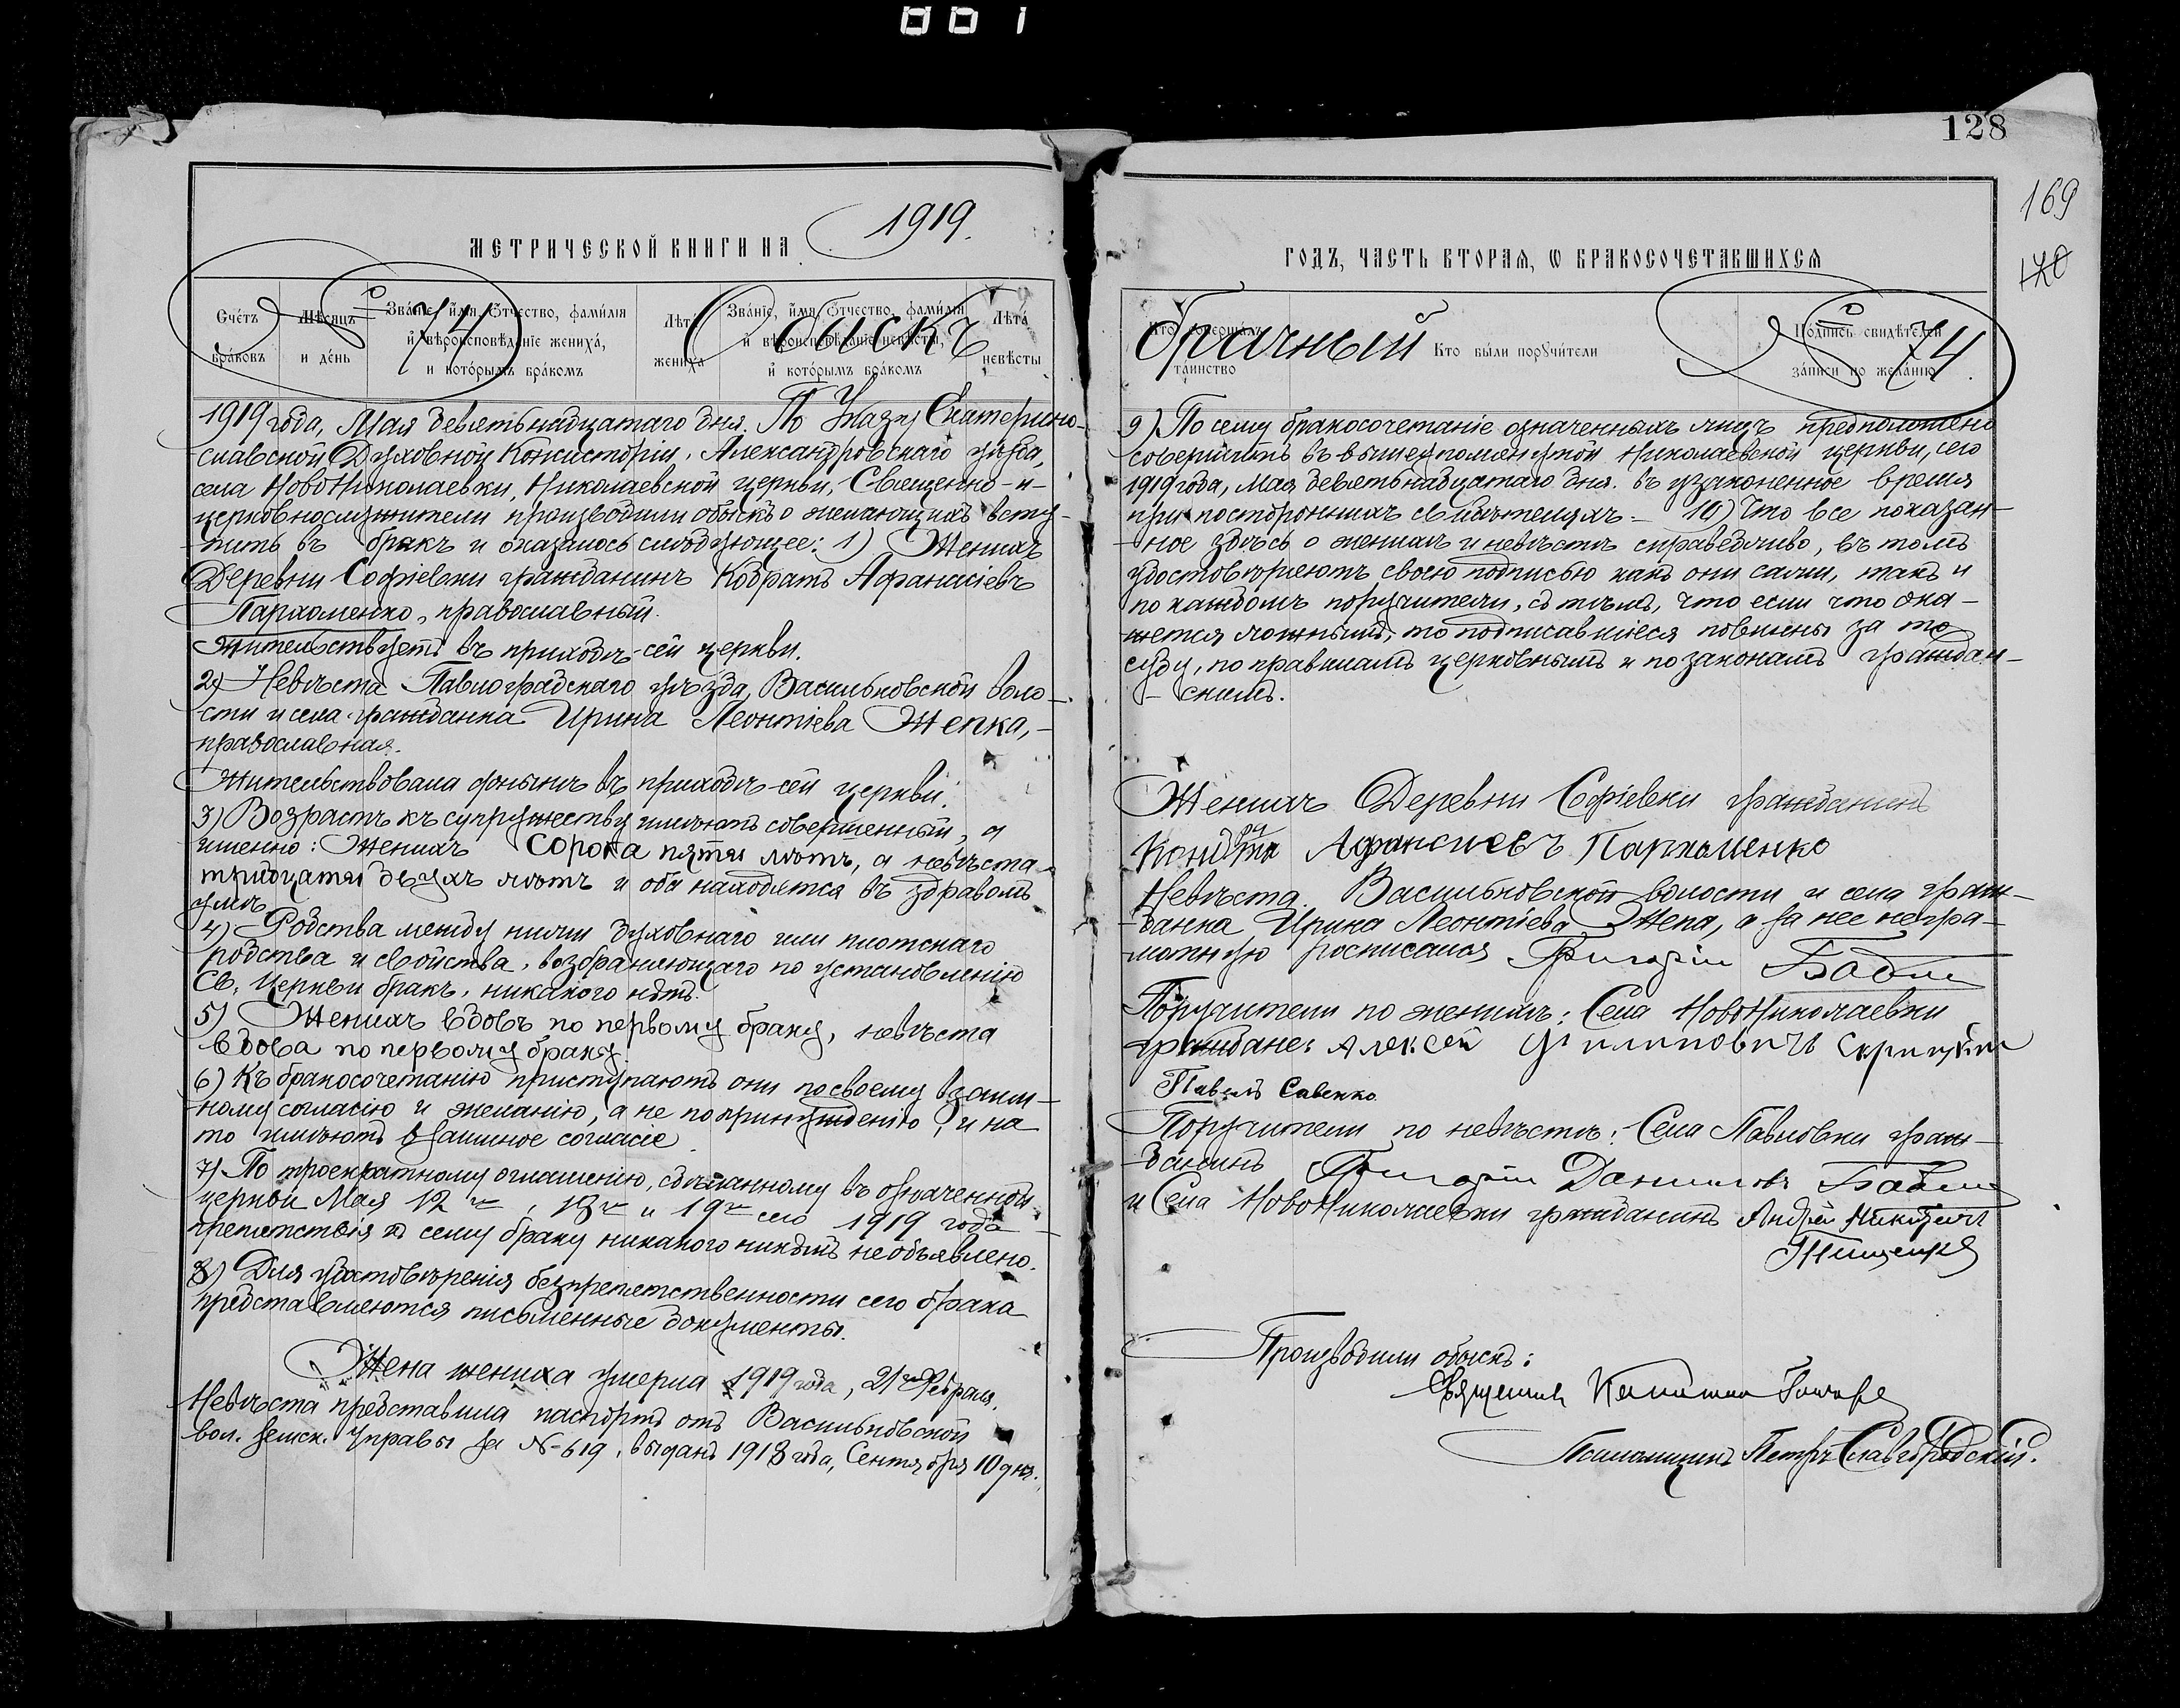 001
128
169
170
МЕТРИЧЕСКОЙ КНИГИ НА 1919.
ГОДЪ, ЧАСТЬ ВТОРАЯ, Ѡ БРАКОСОЧЕТАВШИХСЯ
Счетъ браковъ
Мѣсяцъ и день
Званіе, имя, отчество, фамилія и вѣроисповѣданіе жениха, и которымъ бракомъ
Лѣта жениха
Званіе, имя, отчество, фамилія и вѣроисповѣданіе невѣсты, и которымъ бракомъ
Лѣта невѣсты
Кто совершалъ таинство
Кто были поручители
Подпись свидѣтелей записи по желанію
№ 74
Обыскъ
брачный
№ 74.
1919 года, Мая девятьнадцатаго дня. По Указу Екатерино-
славской Духовной Консисторіи, Александровскаго уѣзда,
села НовоНиколаевки, Николаевской церкви, Священно-и-
церковнослужители производили обыскъ о желающихъ всту-
пить въ бракъ и оказалось слѣдующее: 1) Женихъ
Деревни Софіевки гражданинъ Кодратъ Афанасіевъ
Пархоменко, православный.
Жительствуетъ въ приходѣ сей церкви.
2) Невѣста Павлоградскаго уѣзда, Васильковской воло-
сти и села гражданка Ирина Леонтіева Жепка,-
православная.
Жительствовала до нынѣ въ приходѣ сей церкви.
3) Возрастъ къ супружеству имѣютъ совершенный, а
именно: Женихъ сорока пяти лѣтъ, а невѣста
тридцати двухъ лѣтъ и оба находятся въ здравомъ
умѣ.
4) Родства между ними духовнаго или плотскаго
родства и свойства, возбраняющаго по установленію
Св. Церкви бракъ, никакого нѣтъ.
5) Женихъ вдовъ по первому браку, невѣста
вдова по первому браку.
6) Къ бракосочетанію приступаютъ они по своему взаим-
ному согласію и желанію, а не по принужденію, и на
то имѣютъ взаимное согласіе.
7) По троекратному оглашенію, сдѣланному въ означенной
церкви Мая 12го, 13го и 19го сего 1919 года
препятствія къ сему браку никакого никѣмъ не объявлено.
8) Для удостовѣренія безпрепятственности сего брака
представляются письменные документы.
Жена жениха умерла 1919 года, 21го Февраля.
Невѣста представила паспортъ отъ Васильковской
вол. земск. управы за № 619, выданъ 1918 года, Сентября 10 дня.
9) По сему бракосочетаніе означенныхъ лицъ предположено
совершить въ вышеупомянутой Николаевской церкви, сего
1919 года, Мая девятьнадцатаго дня. въ узаконенное время
при постороннихъ свидѣтеляхъ.- 10) Что все показан-
ное здѣсь о женихѣ и невѣстѣ справедливо, въ томъ
удостовѣряютъ своею подписью какъ они сами, такъ и
по каждомъ поручители, съ тѣмъ, что если что ока-
жется ложнымъ, то подписавшіеся повинны за то
суду, по правиламъ церковнымъ и по законамъ граждан-
скимъ.
Женихъ Деревни Софіевки гражданинъ
Афансиевъ Пархоменко
Невѣста Васильковской волости и села граж-
данка Ирина Леонтіева Жепа, а за нее негра-
мотную росписался Григорій Бабич
Поручители по женихѣ: Села НовоНиколаевки
граждане: Алексей Филиповичъ
Павелъ Савенко
Поручители по невѣстѣ: Села Павловки граж-
данинъ Григорій Даниловъ Бабич
и Села НовоНиколаевки гражданинъ Андрей Никитичъ
Тищенко
Производили обыскъ:
Священникъ
Псаломщикъ Петръ Славгородскій.